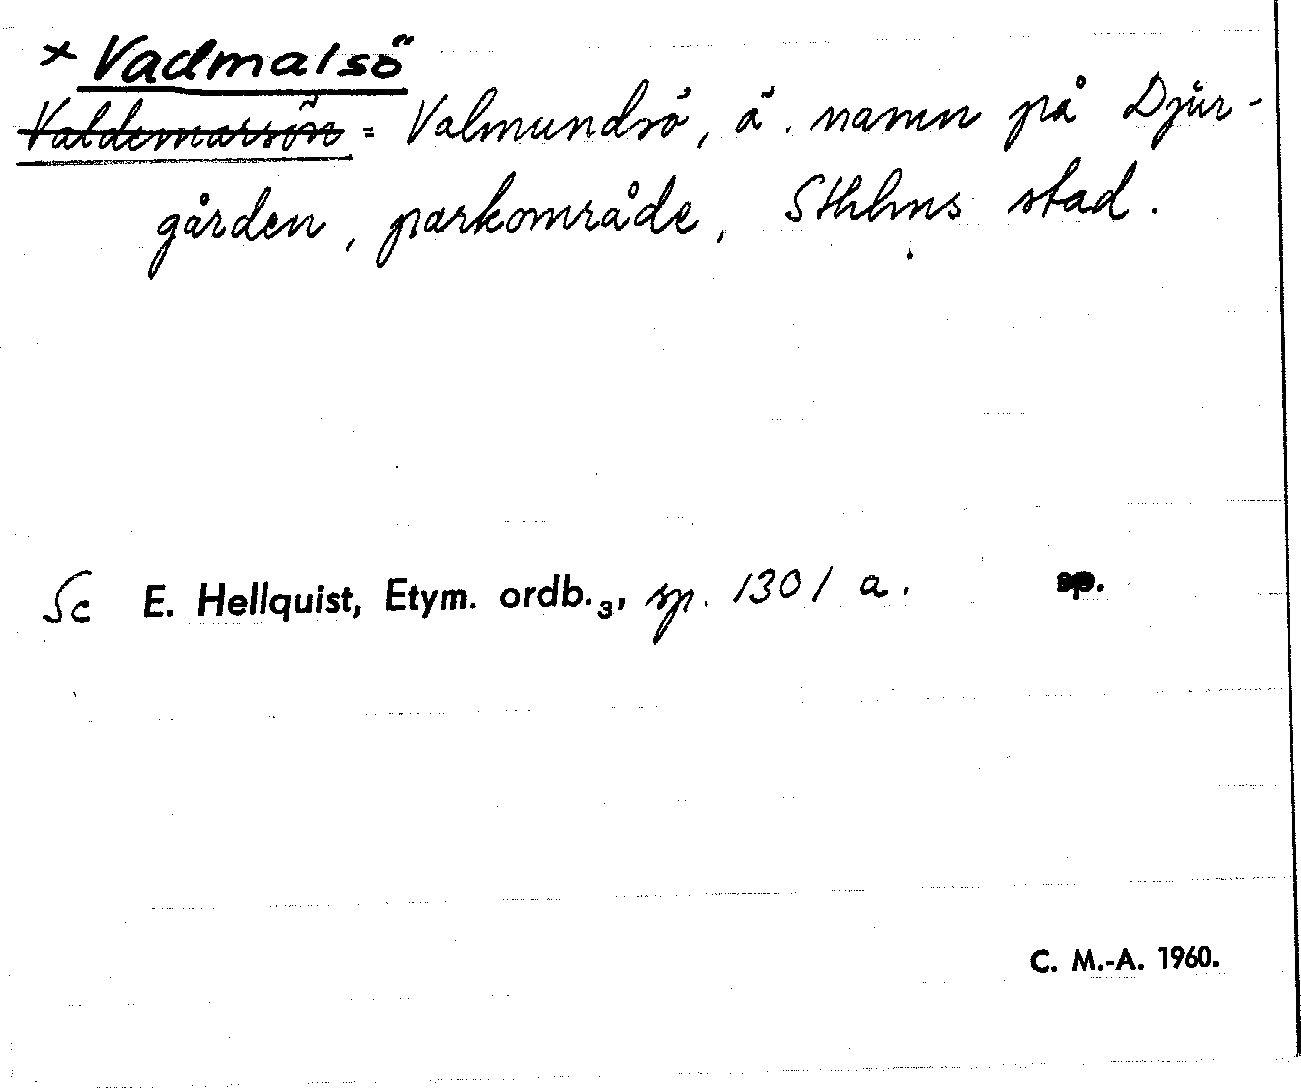 × Vadmalsö
Valdemarsön = Valmundsö, ä. namn på Djur-
gården, parkområde, Sthlms stad.
Se E. Hellquist, Etym. ordb.₃, sp. 1301 a. sp.
C. M.-A. 1960.